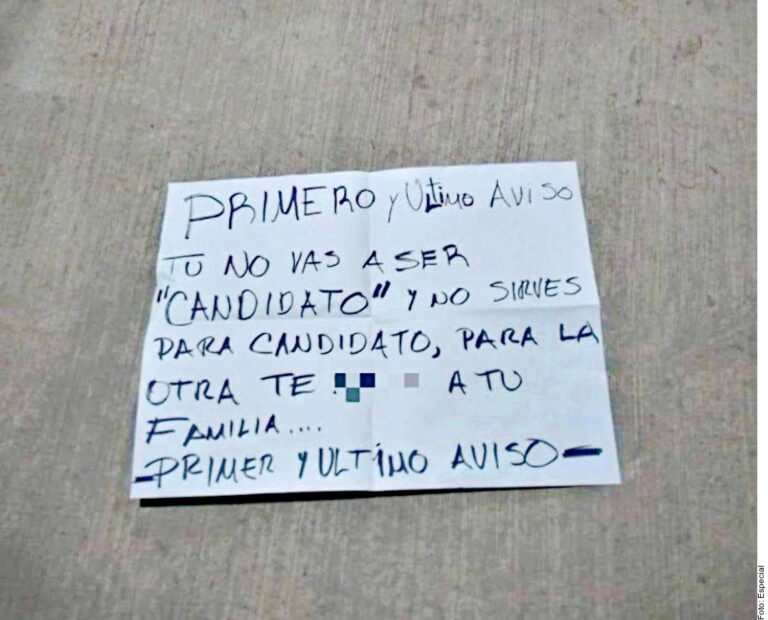 PRIMERO y Ultimo AVISO
TU NO VAS A SER
"CANDIDATO" Y NO SIRVES
PARA CANDIDATO, PARA LA
OTRA TE A TU
FAMILIA....
-PRIMER Y ULTIMO AVISO-
Foto: Especial